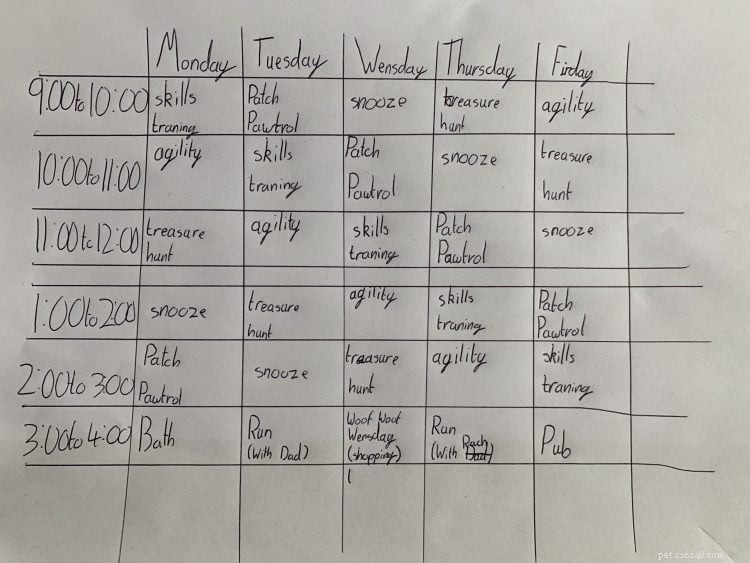 Monday Tuesday Wensday Thursday Firday
9:00to10:00 skills traning Patch Pawtrol snooze treasure hunt agility
10:00to11:00 agility skills traning Patch Pawtrol snooze treasure hunt
11:00to12:00 treasure hunt agility skills traning Patch Pawtrol snooze
1:00to200 snooze treasure hunt agility skills traning Patch Pawtrol
2:00to300 Patch Pawtrol snooze treasure hunt agility skills traning
3:00to4:00 Bath Run (With Dad) Woof Woof Wensday (shopping) Run (With Rach Dad) Pub
pet.226248.com